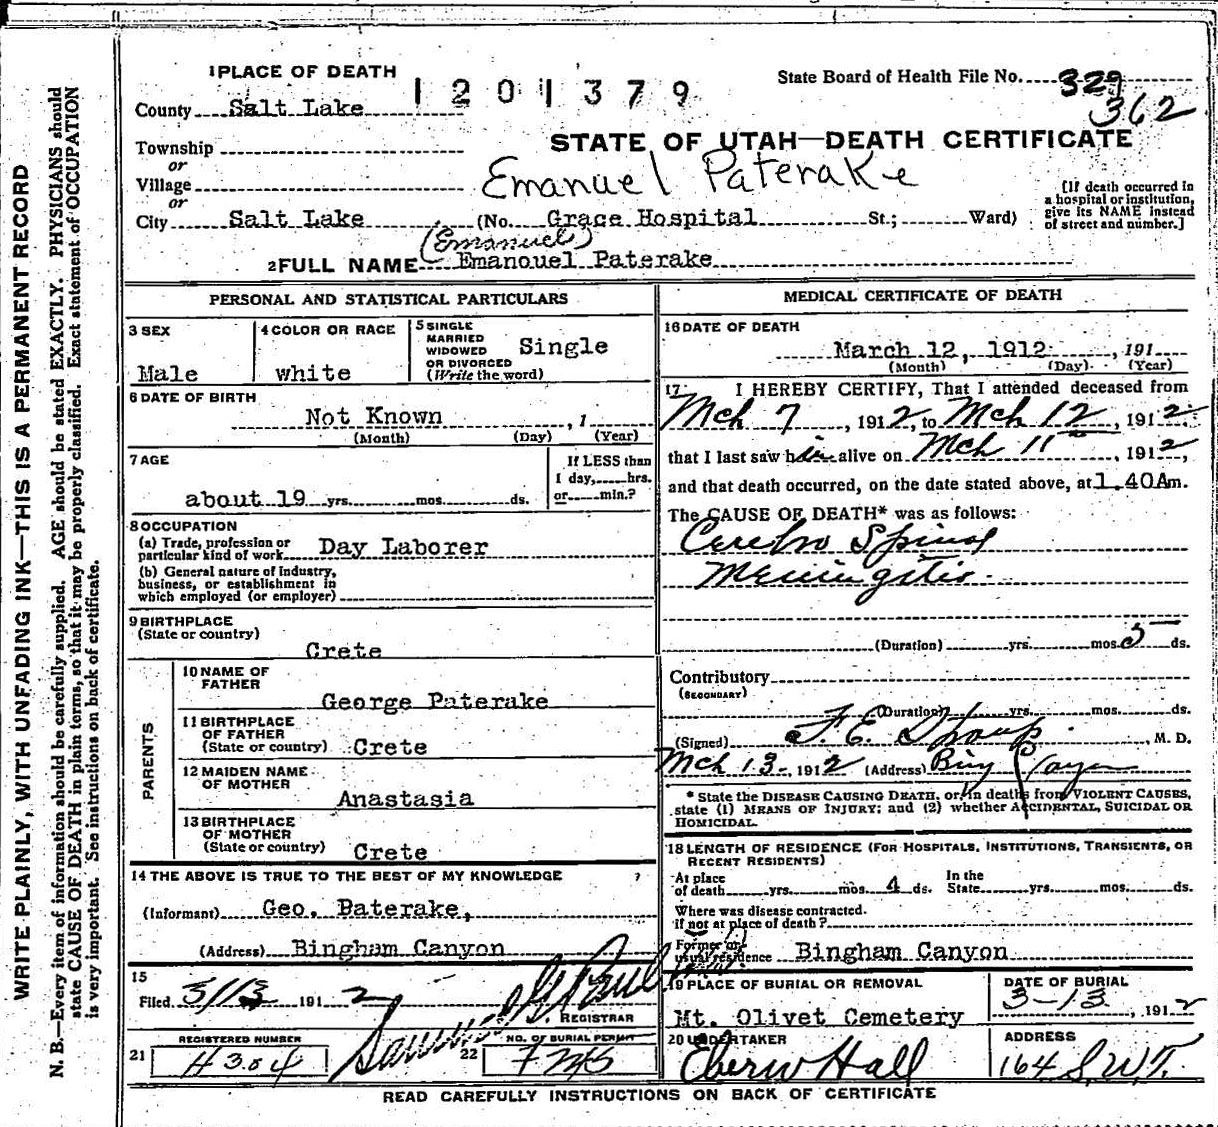 1 PLACE OF DEATH
1201379
State Board of Health File No. 329
362
County Salt Lake
STATE OF UTAH—DEATH CERTIFICATE
Township
or
Village
Emanuel Paterake
or
City Salt Lake (No. Grace Hospital St.; Ward)
[If death occurred in
a hospital or institution,
give its NAME instead
of street and number.]
(Emanuel)
2 FULL NAME Emanouel Paterake
PERSONAL AND STATISTICAL PARTICULARS
3 SEX
Male
4 COLOR OR RACE
white
5 SINGLE
MARRIED
WIDOWED
OR DIVORCED
(Write the word)
Single
6 DATE OF BIRTH
Not Known , 1
(Month) (Day) (Year)
7 AGE
about 19 yrs. mos. ds.
If LESS than
1 day, hrs.
or min.?
8 OCCUPATION
(a) Trade, profession or
particular kind of work Day Laborer
(b) General nature of Industry,
business, or establishment in
which employed (or employer)
9 BIRTHPLACE
(State or country)
Crete
PARENTS
10 NAME OF
FATHER
George Paterake
11 BIRTHPLACE
OF FATHER
(State or country) Crete
12 MAIDEN NAME
OF MOTHER
Anastasia
13 BIRTHPLACE
OF MOTHER
(State or country) Crete
14 THE ABOVE IS TRUE TO THE BEST OF MY KNOWLEDGE
(Informant) Geo. Paterake,
(Address) Bingham Canyon
15
Filed 3/13 191 2
REGISTRAR
REGISTERED NUMBER
21 H304
NO. OF BURIAL PERMIT
22 7245
MEDICAL CERTIFICATE OF DEATH
16 DATE OF DEATH
March 12, 1912 , 191
(Month) (Day) (Year)
17 I HEREBY CERTIFY, That I attended deceased from
Mch 7 , 1912, to Mch 12 , 1912
that I last saw him alive on Mch 11 , 1912,
and that death occurred, on the date stated above, at 1.40 Am.
The CAUSE OF DEATH* was as follows:
Cerebro Spinal
Meningitis
(Duration) yrs. mos. 5 ds.
Contributory
(SECONDARY)
(Duration) yrs. mos. ds.
(Signed) F. E. , M. D.
Mch 13, 1912 (Address) Bing Canyon
* State the DISEASE CAUSING DEATH, or, in deaths from VIOLENT CAUSES,
state (1) MEANS OF INJURY; and (2) whether ACCIDENTAL, SUICIDAL OR
HOMICIDAL.
18 LENGTH OF RESIDENCE (FOR HOSPITALS, INSTITUTIONS, TRANSIENTS, OR
RECENT RESIDENTS)
At place
of death yrs. mos. 4 ds.
In the
State yrs. mos. ds.
Where was disease contracted.
if not at place of death?
Former or
usual residence Bingham Canyon
19 PLACE OF BURIAL OR REMOVAL
Mt. Olivet Cemetery
DATE OF BURIAL
3-13 , 1912
20 UNDERTAKER
Eber W Hall
ADDRESS
164 S. W. T.
READ CAREFULLY INSTRUCTIONS ON BACK OF CERTIFICATE
WRITE PLAINLY, WITH UNFADING INK—THIS IS A PERMANENT RECORD
N. B.—Every item of information should be carefully supplied. AGE should be stated EXACTLY. PHYSICIANS should
state CAUSE OF DEATH in plain terms, so that it may be properly classified. Exact statement of OCCUPATION
is very important. See instructions on back of certificate.